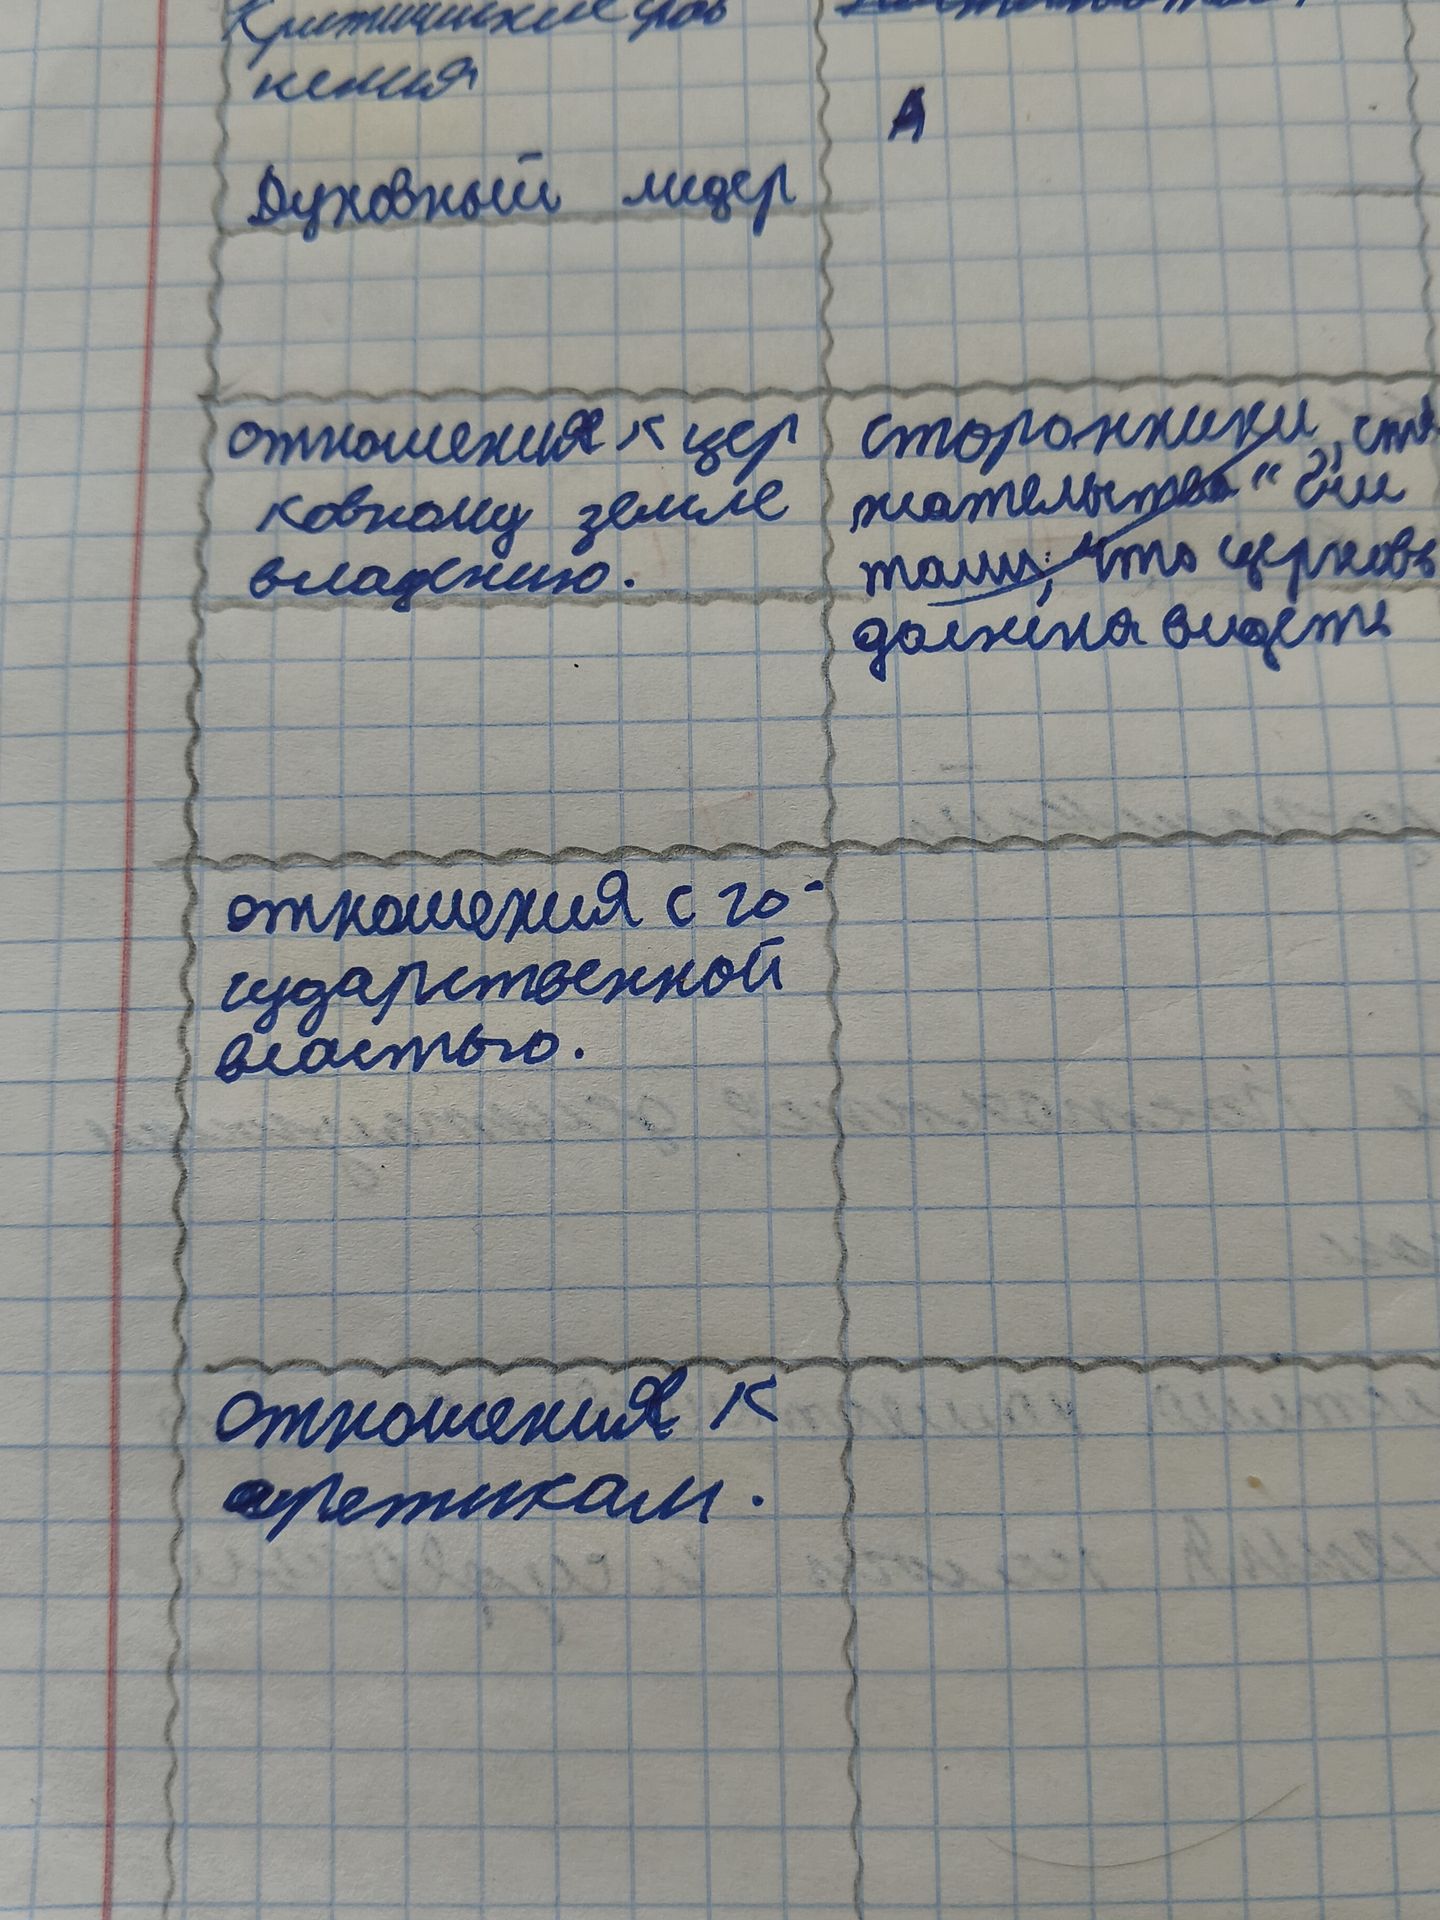 Критические срав
нения
А
Духовный лидер
отношения к цер
ковному земле
владению.
сторонники „стя
жательства" счи
тали, что церковь
должна видеть
отношения с го-
сударственной
властью.
отношения к
еретикам.